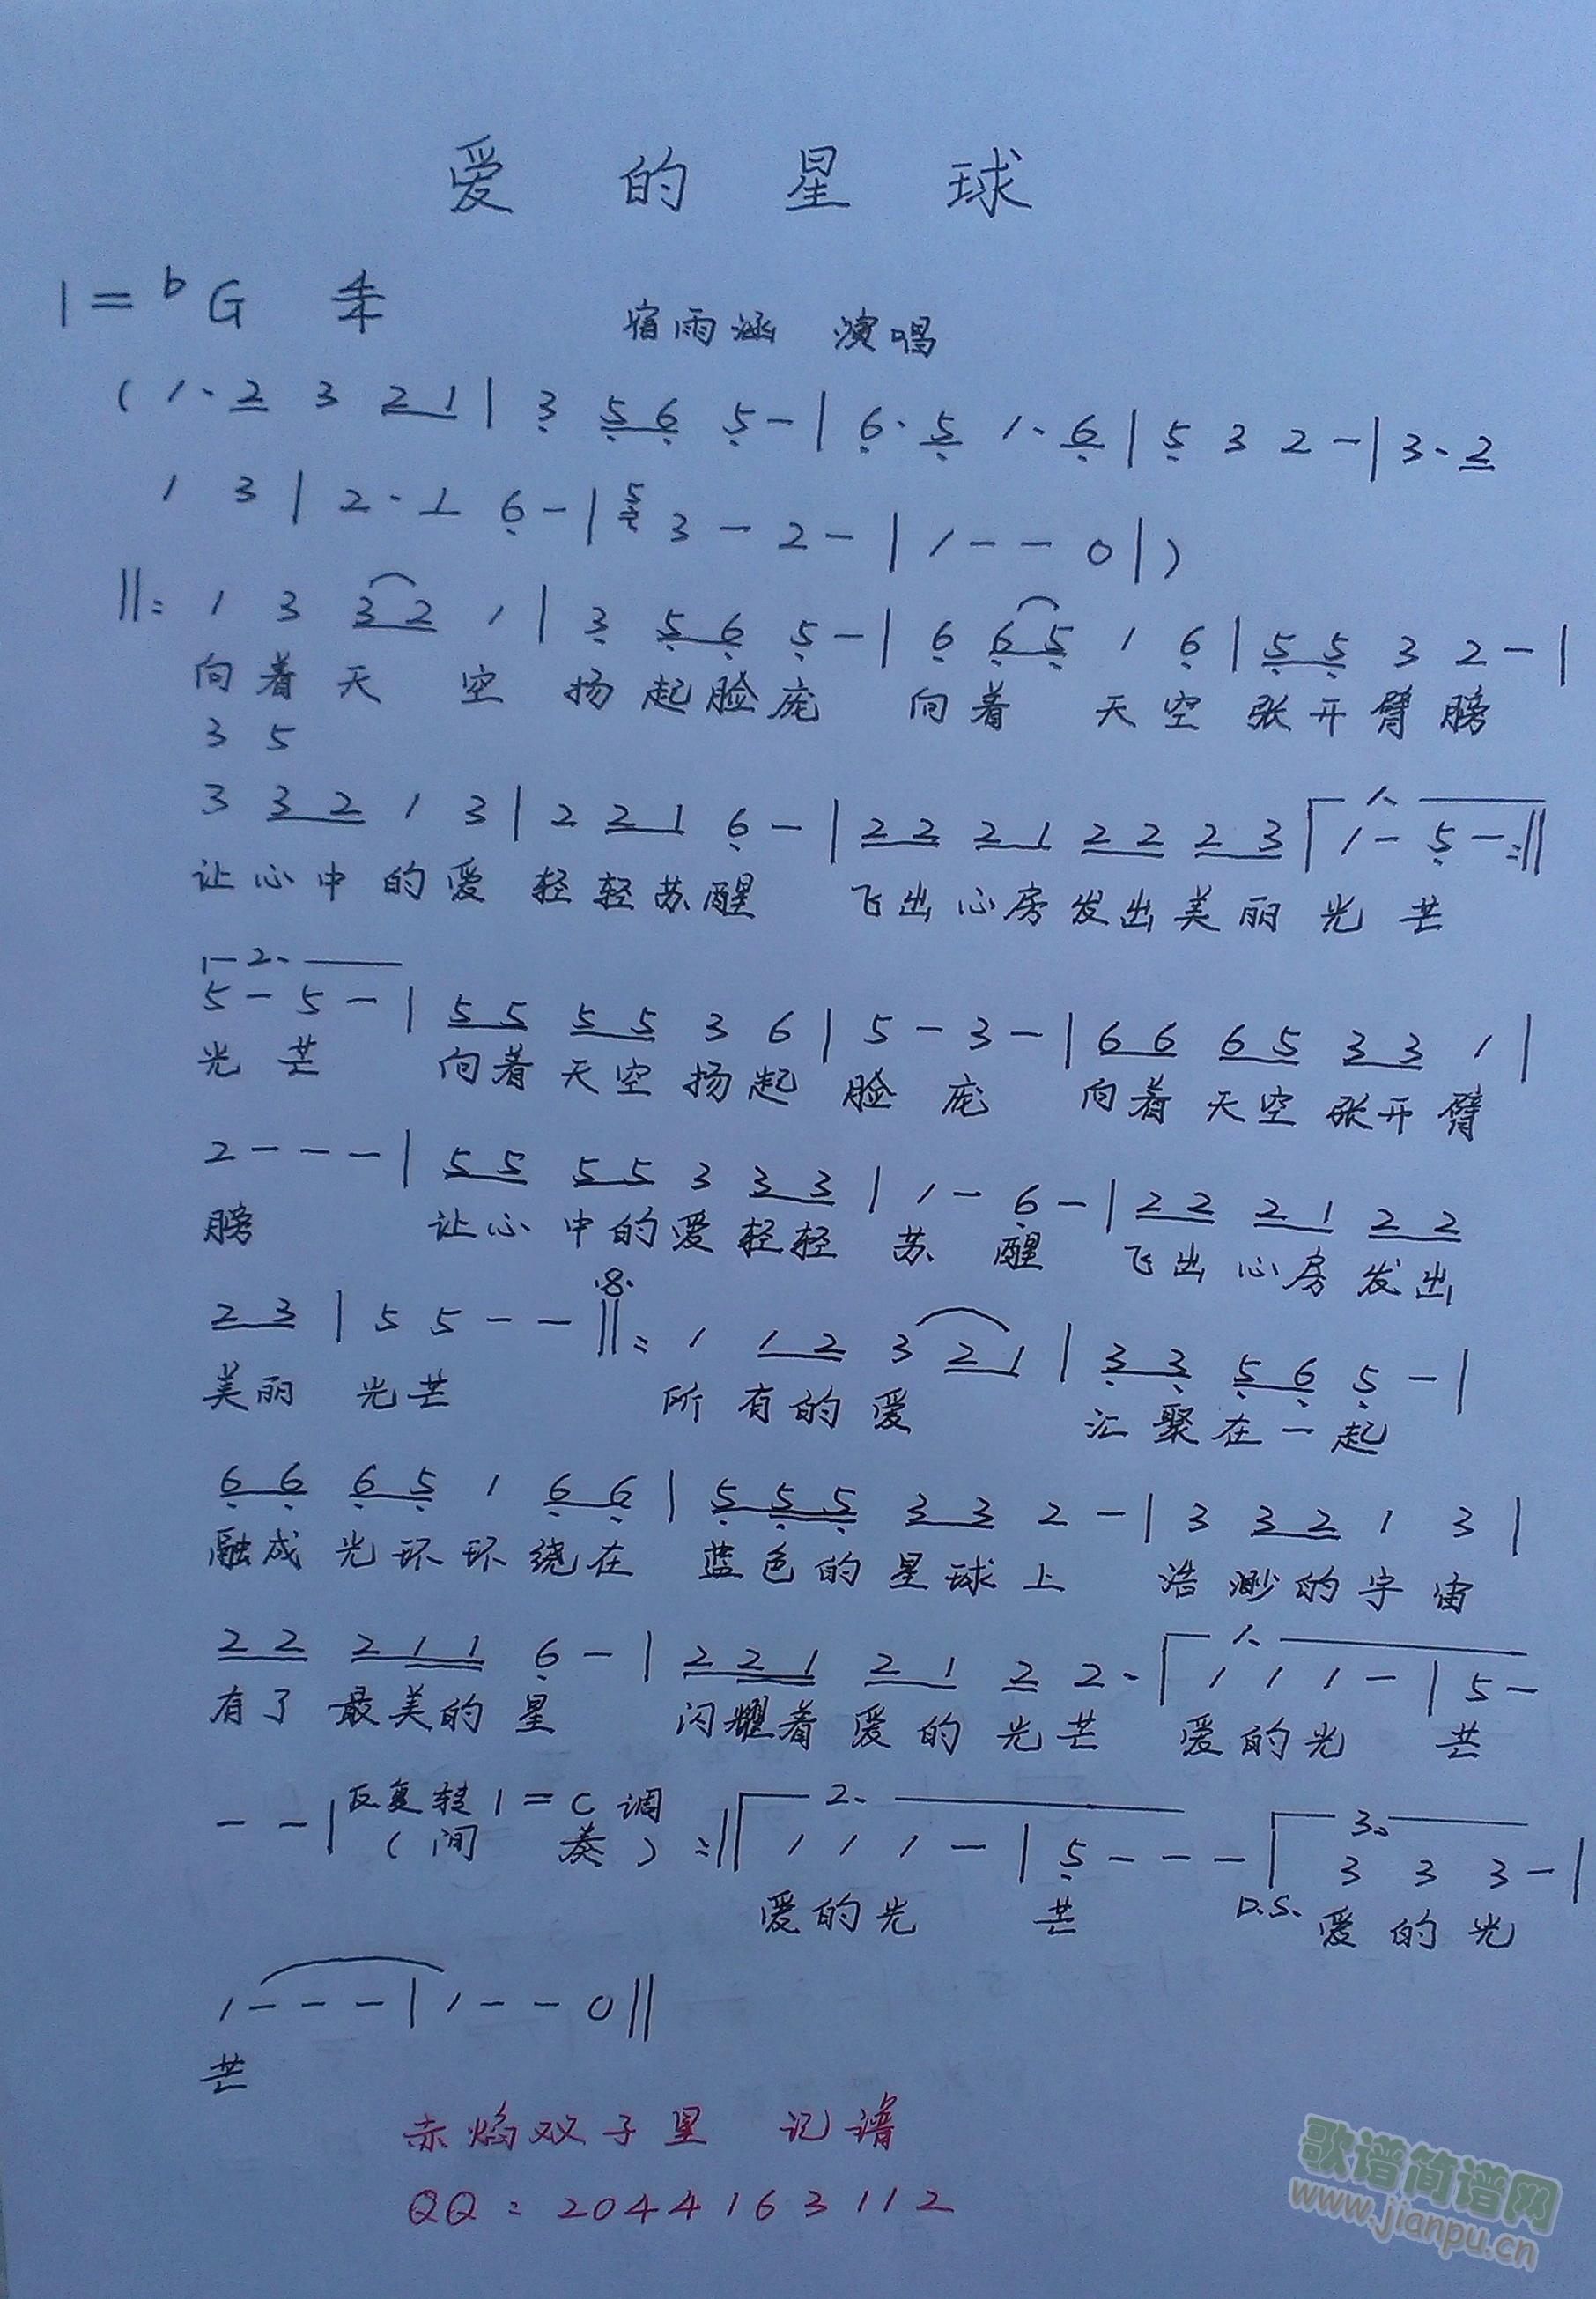 爱的星球
1=bG 4/4
宿雨涵 演唱
( 1· 2 3 2 1 | 3 5 6 5 - | 6· 5 1· 6 | 5 3 2 - | 3· 2
1 3 | 2· 1 6 - | 5 3 - 2 - | 1 - - 0 | )
||: 1 3 3 2 1 | 3 5 6 5 - | 6 6 5 1 6 | 5 5 3 2 - |
向着天空扬起脸庞 向着天空张开臂膀
3 5
3 3 2 1 3 | 2 2 1 6 - | 2 2 2 1 2 2 2 3 | 1、 1 - 5 - :||
让心中的爱轻轻苏醒 飞出心房发出美丽光芒
2、
5 - 5 - | 5 5 5 5 3 6 | 5 - 3 - | 6 6 6 5 3 3 1 |
光芒 向着天空扬起脸庞 向着天空张开臂
2 - - - | 5 5 5 5 3 3 3 | 1 - 6 - | 2 2 2 1 2 2
膀 让心中的爱轻轻苏醒 飞出心房发出
2 3 | 5 5 - - ||: 1 1 2 3 2 1 | 3 3 5 6 5 - |
美丽光芒 所有的爱 汇聚在一起
6 6 6 5 1 6 6 | 5 5 5 3 3 2 - | 3 3 2 1 3 |
融成光环环绕在 蓝色的星球上 浩渺的宇宙
2 2 2 1 1 6 - | 2 2 1 2 1 2 2· | 1、 1 1 1 - | 5 -
有了最美的星 闪耀着爱的光芒 爱的光芒
- - | 反复转1=C调 (间奏) :|| 2、 1 1 1 - | 5 - - - | 3、 3 3 3 - |
爱的光芒 D.S. 爱的光
1 - - - | 1 - - 0 ||
芒
赤焰双子星 记谱
QQ:2044163112
歌谱简谱网
www.jianpu.cn